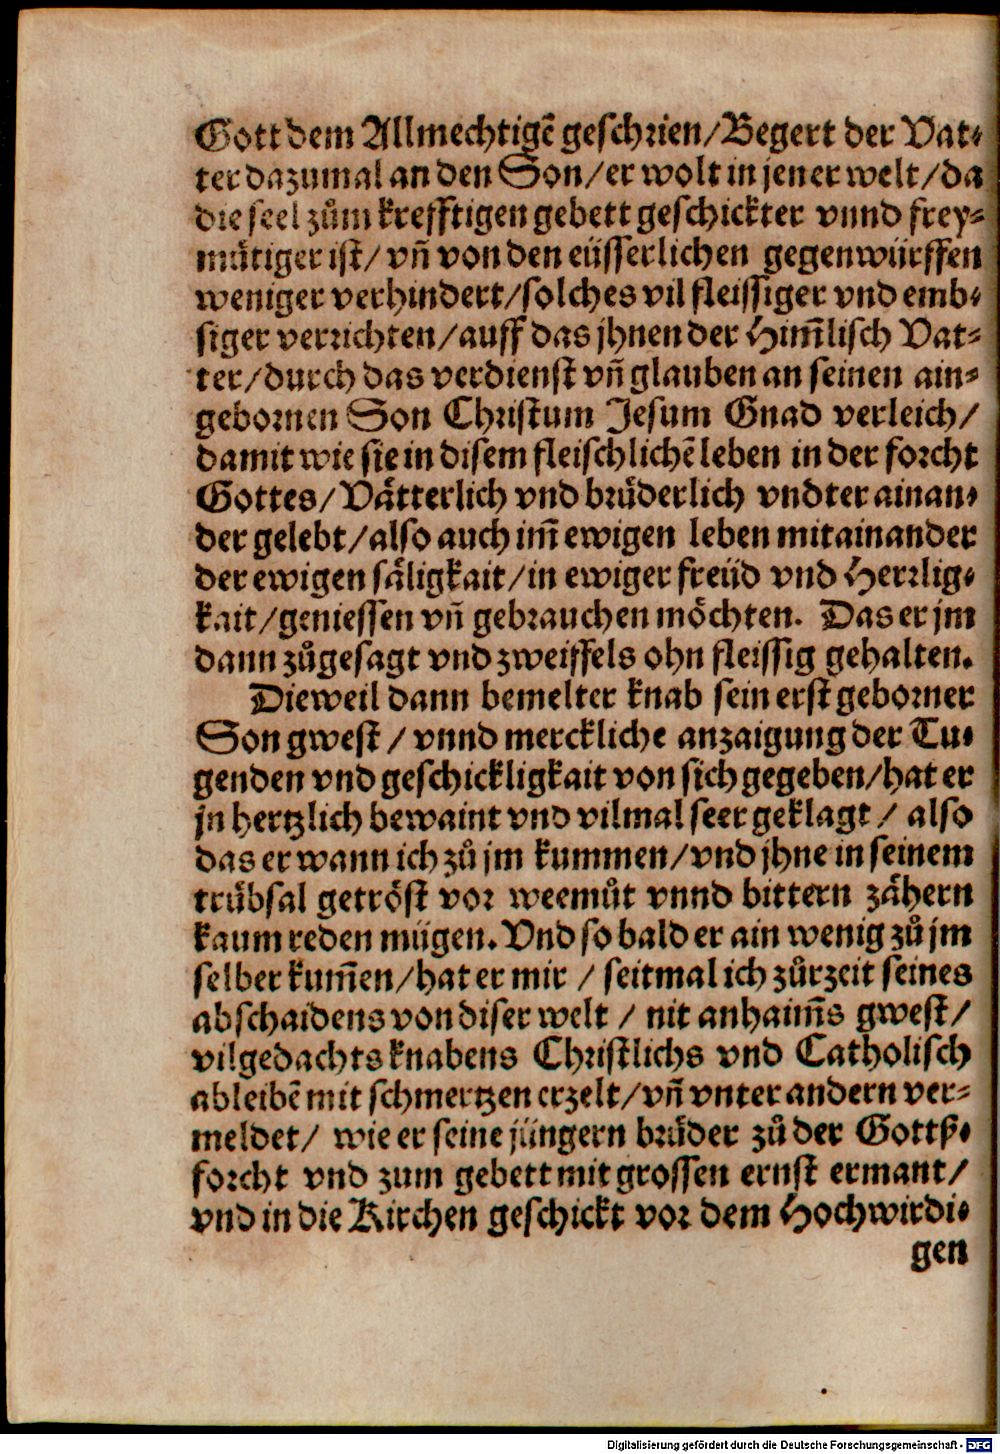 Gott dem Allmechtigẽ geschrien/Begert der Vat⸗
ter dazumal an den Son/er wolt in jener welt/da
die seel zům krefftigen gebett geschickter vnnd frey⸗
můtiger ist/ vñ von den eüsserlichen gegenwürffen
weniger verhindert/solches vil fleissiger vnd emb⸗
siger verrichten/auff das jhnen der Him̃lisch Vat⸗
ter/durch das verdienst vñ glauben an seinen ain⸗
gebornen Son Christum Jesum Gnad verleich/
damit wie sie in disem fleischlichẽ leben in der forcht
Gottes/Vätterlich vnd brüderlich vndter ainan⸗
der gelebt/also auch im̃ ewigen leben mitainander
der ewigen säligkait/in ewiger freüd vnd Herrlig⸗
kait/geniessen vñ gebrauchen möchten. Das er jm
dann zůgesagt vnd zweiffels ohn fleissig gehalten.
Dieweil dann bemelter knab sein erst geborner
Son gwest / vnnd merckliche anzaigung der Tu⸗
genden vnd geschickligkait von sich gegeben/hat er
jn hertzlich bewaint vnd vilmal seer geklagt / also
das er wann ich zů jm kummen/vnd jhne in seinem
trübsal getröst vor weemůt vnnd bittern zähern
kaum reden mügen. Vnd so bald er ain wenig zů jm
selber kum̃en/hat er mir / seitmal ich zůrzeit seines
abschaidens von diser welt / nit anhaim̃s gwest/
vilgedachts knabens Christlichs vnd Catholisch
ableibẽ mit schmertzen erzelt/vñ vnter andern ver⸗
meldet/ wie er seine jüngern brüder zů der Gottß⸗
forcht vnd zum gebett mit grossen ernst ermant/
vnd in die Kirchen geschickt vor dem Hochwirdi⸗
gen
Digitalisierung gefördert durch die Deutsche Forschungsgemeinschaft - DFG